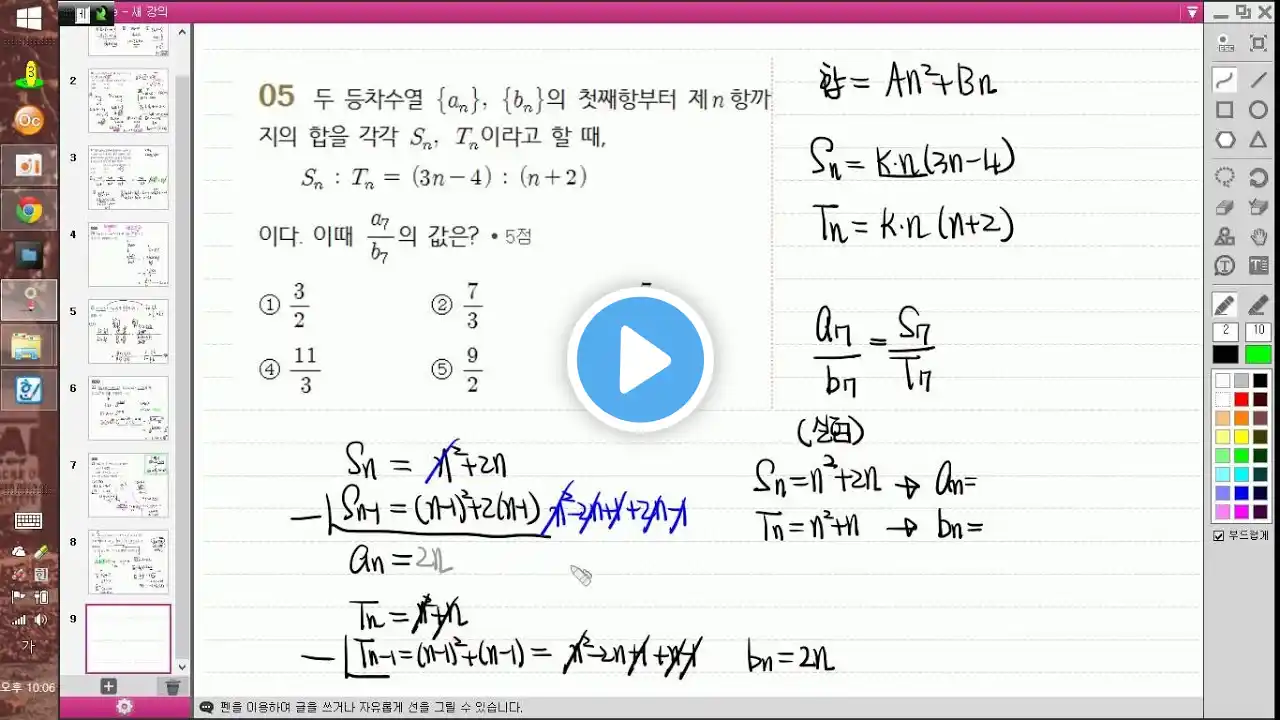 - 새 강의
05 두 등차수열 {aₙ}, {bₙ}의 첫째항부터 제n항까
지의 합을 각각 Sₙ, Tₙ이라고 할 때,
Sₙ : Tₙ = (3n-4) : (n+2)
이다. 이때 a₇/b₇의 값은? • 5점
① 3/2 ② 7/3
④ 11/3 ⑤ 9/2
합 = An²+Bn
Sₙ = K·n(3n-4)
Tₙ = K·n(n+2)
a₇/b₇ = S₇/T₇
(실험)
Sₙ=n²+2n → aₙ=
Tₙ=n²+n → bₙ=
Sₙ = n²+2n
- Sₙ₋₁ = (n-1)²+2(n-1) n²-2n+1+2n-1
aₙ = 2n
Tₙ = n²+n
- Tₙ₋₁=(n-1)²+(n-1) = n²-2n+1+n-1 bₙ=2n
2
3
4
5
6
7
8
9
2 10
부드럽게
가
오후 10:06
펜을 이용하여 글을 쓰거나 자유롭게 선을 그릴 수 있습니다.